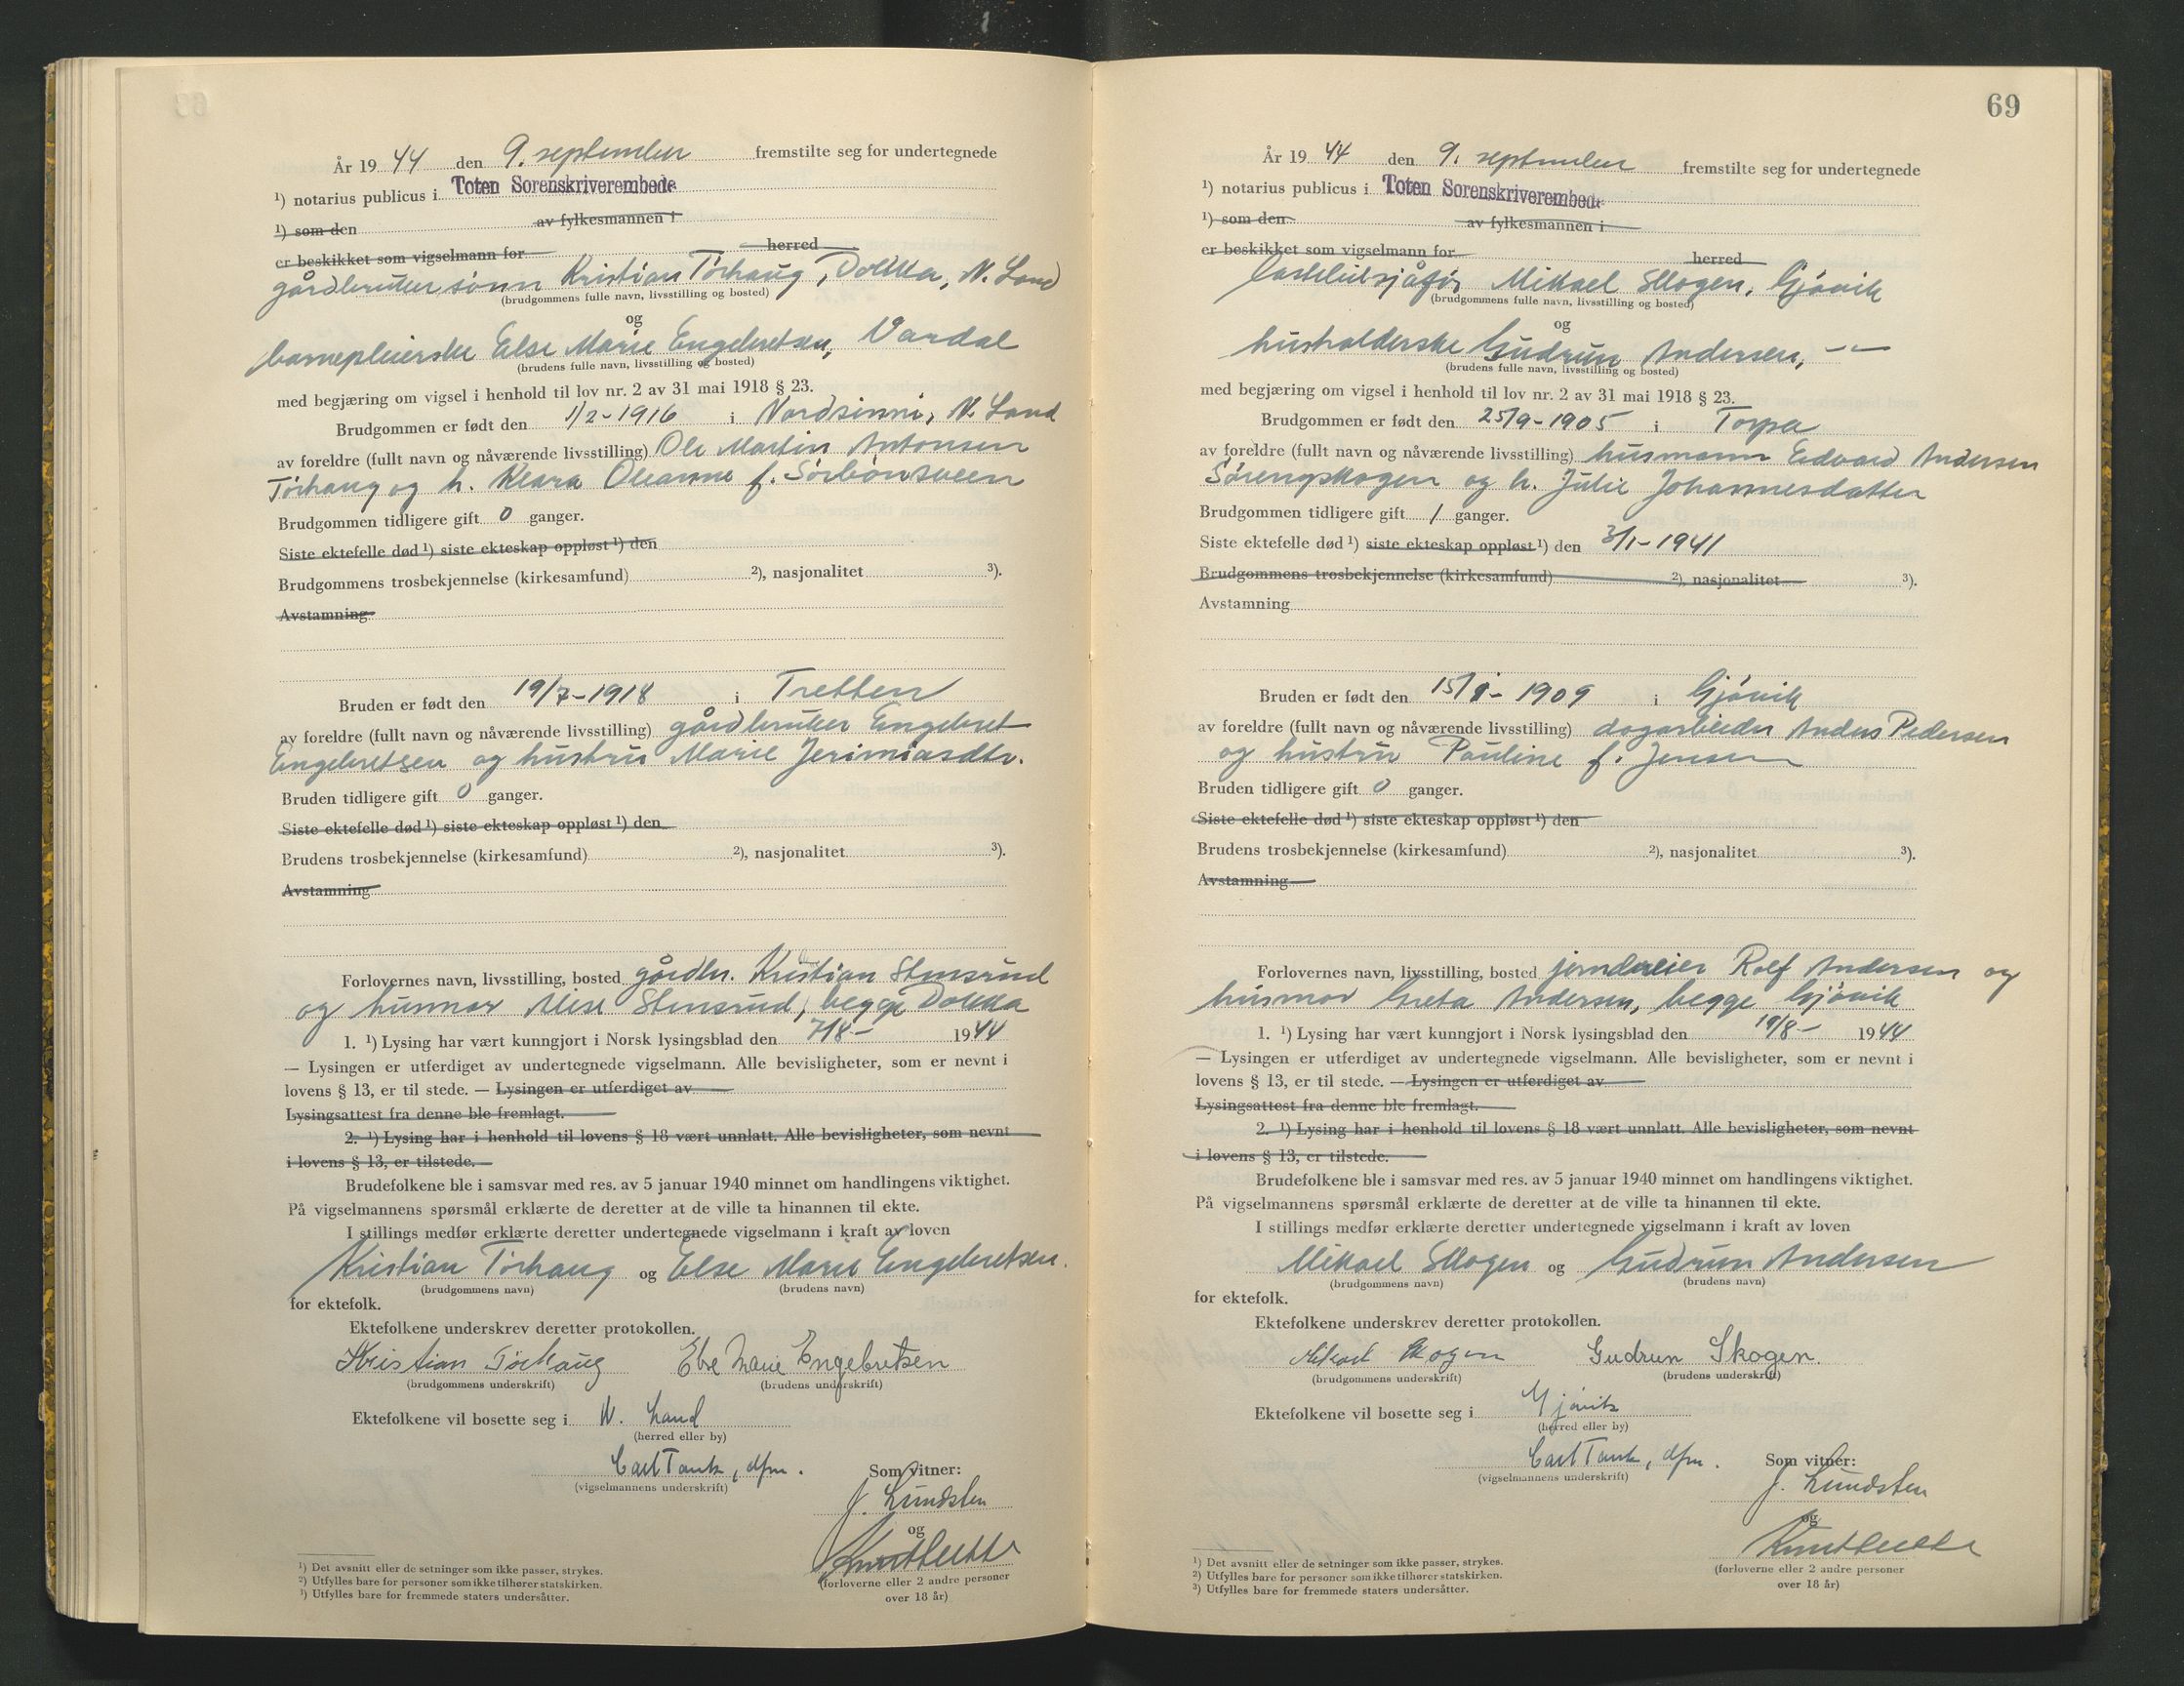 År 19 44 den 9. september fremstilte seg for undertegnede
¹) notarius publicus i Toten Sorenskriverembede
¹) som den av fylkesmannen i
er beskikket som vigselmann for herred
gårdbruker sønn Kristian Tørhaug, Dokka, N. Land
(brudgommens fulle navn, livsstilling og bosted)
og
barnepleierske Else Marie Engebretsen, Vardal
(brudens fulle navn, livsstilling og bosted)
med begjæring om vigsel i henhold til lov nr. 2 av 31 mai 1918 § 23.
Brudgommen er født den 1/2-1916 i Nordsinni, N. Land
av foreldre (fullt navn og nåværende livsstilling) Ole Martin Antonsen
Tørhaug og h. Klara Oleanne f.
Brudgommen tidligere gift 0 ganger.
Siste ektefelle død ¹) siste ekteskap oppløst ¹) den
Brudgommens trosbekjennelse (kirkesamfund) ²), nasjonalitet ³).
Avstamning
Bruden er født den 19/7-1918 i Tretten
av foreldre (fullt navn og nåværende livsstilling) gårdbruker Engebret
Engebretsen og hustru Marie Jerimiasdtr.
Bruden tidligere gift 0 ganger.
Siste ektefelle død ¹) siste ekteskap oppløst ¹) den
Brudens trosbekjennelse (kirkesamfund) ²), nasjonalitet ³).
Avstamning
Forlovernes navn, livsstilling, bosted gårdbr. Kristian Stensrud
og husmor Alise Stensrud, begge Dokka
1. ¹) Lysing har vært kunngjort i Norsk lysingsblad den 7/8- 1944
— Lysingen er utferdiget av undertegnede vigselmann. Alle bevisligheter, som er nevnt i
lovens § 13, er til stede. — Lysingen er utferdiget av
Lysingsattest fra denne ble fremlagt.
2. ¹) Lysing har i henhold til lovens § 18 vært unnlatt. Alle bevisligheter, som nevnt
i lovens § 13, er tilstede.
Brudefolkene ble i samsvar med res. av 5 januar 1940 minnet om handlingens viktighet.
På vigselmannens spørsmål erklærte de deretter at de ville ta hinannen til ekte.
I stillings medfør erklærte deretter undertegnede vigselmann i kraft av loven
Kristian Tørhaug og Else Marie Engebretsen.
(brudgommens navn) (brudens navn)
for ektefolk.
Ektefolkene underskrev deretter protokollen.
Kristian Tørhaug Else Marie Engebretsen
(brudgommens underskrift) (brudens underskrift)
Ektefolkene vil bosette seg i N. Land
(herred eller by)
Carl Tank, dfm. Som vitner:
(vigselmannens underskrift)
J. Lundsten
og
(forloverne eller 2 andre personer
over 18 år)
¹) Det avsnitt eller de setninger som ikke passer, strykes.
²) Utfylles bare for personer som ikke tilhører statskirken.
³) Utfylles bare for fremmede staters undersåtter.
69
År 19 44 den 9. september fremstilte seg for undertegnede
¹) notarius publicus i Toten Sorenskriverembede
¹) som den av fylkesmannen i
er beskikket som vigselmann for herred
lastebilsjåfør Mikael Skogen, Gjøvik
(brudgommens fulle navn, livsstilling og bosted)
og
husholderske Gudrun Andersen, -"-
(brudens fulle navn, livsstilling og bosted)
med begjæring om vigsel i henhold til lov nr. 2 av 31 mai 1918 § 23.
Brudgommen er født den 25/9-1905 i Torpa
av foreldre (fullt navn og nåværende livsstilling) husmann Edvard Andersen
Sørengskogen og h. Julie Johannesdatter
Brudgommen tidligere gift 1 ganger.
Siste ektefelle død ¹) siste ekteskap oppløst ¹) den 3/1-1941
Brudgommens trosbekjennelse (kirkesamfund) ²), nasjonalitet ³).
Avstamning
Bruden er født den 15/1- 1909 i Gjøvik
av foreldre (fullt navn og nåværende livsstilling) dagarbeider Anders Pedersen
og hustru Pauline f. Jensen
Bruden tidligere gift 0 ganger.
Siste ektefelle død ¹) siste ekteskap oppløst ¹) den
Brudens trosbekjennelse (kirkesamfund) ²), nasjonalitet ³).
Avstamning
Forlovernes navn, livsstilling, bosted jerndreier Rolf Andersen og
husmor Greta Andersen, begge Gjøvik
1. ¹) Lysing har vært kunngjort i Norsk lysingsblad den 19/8- 1944
— Lysingen er utferdiget av undertegnede vigselmann. Alle bevisligheter, som er nevnt i
lovens § 13, er til stede. — Lysingen er utferdiget av
Lysingsattest fra denne ble fremlagt.
2. ¹) Lysing har i henhold til lovens § 18 vært unnlatt. Alle bevisligheter, som nevnt
i lovens § 13, er tilstede.
Brudefolkene ble i samsvar med res. av 5 januar 1940 minnet om handlingens viktighet.
På vigselmannens spørsmål erklærte de deretter at de ville ta hinannen til ekte.
I stillings medfør erklærte deretter undertegnede vigselmann i kraft av loven
Mikael Skogen og Gudrun Andersen
(brudgommens navn) (brudens navn)
for ektefolk.
Ektefolkene underskrev deretter protokollen.
Mikael Skogen Gudrun Skogen.
(brudgommens underskrift) (brudens underskrift)
Ektefolkene vil bosette seg i Gjøvik
(herred eller by)
Carl Tank, dfm. Som vitner:
(vigselmannens underskrift)
J. Lundsten
og
(forloverne eller 2 andre personer
over 18 år)
¹) Det avsnitt eller de setninger som ikke passer, strykes.
²) Utfylles bare for personer som ikke tilhører statskirken.
³) Utfylles bare for fremmede staters undersåtter.